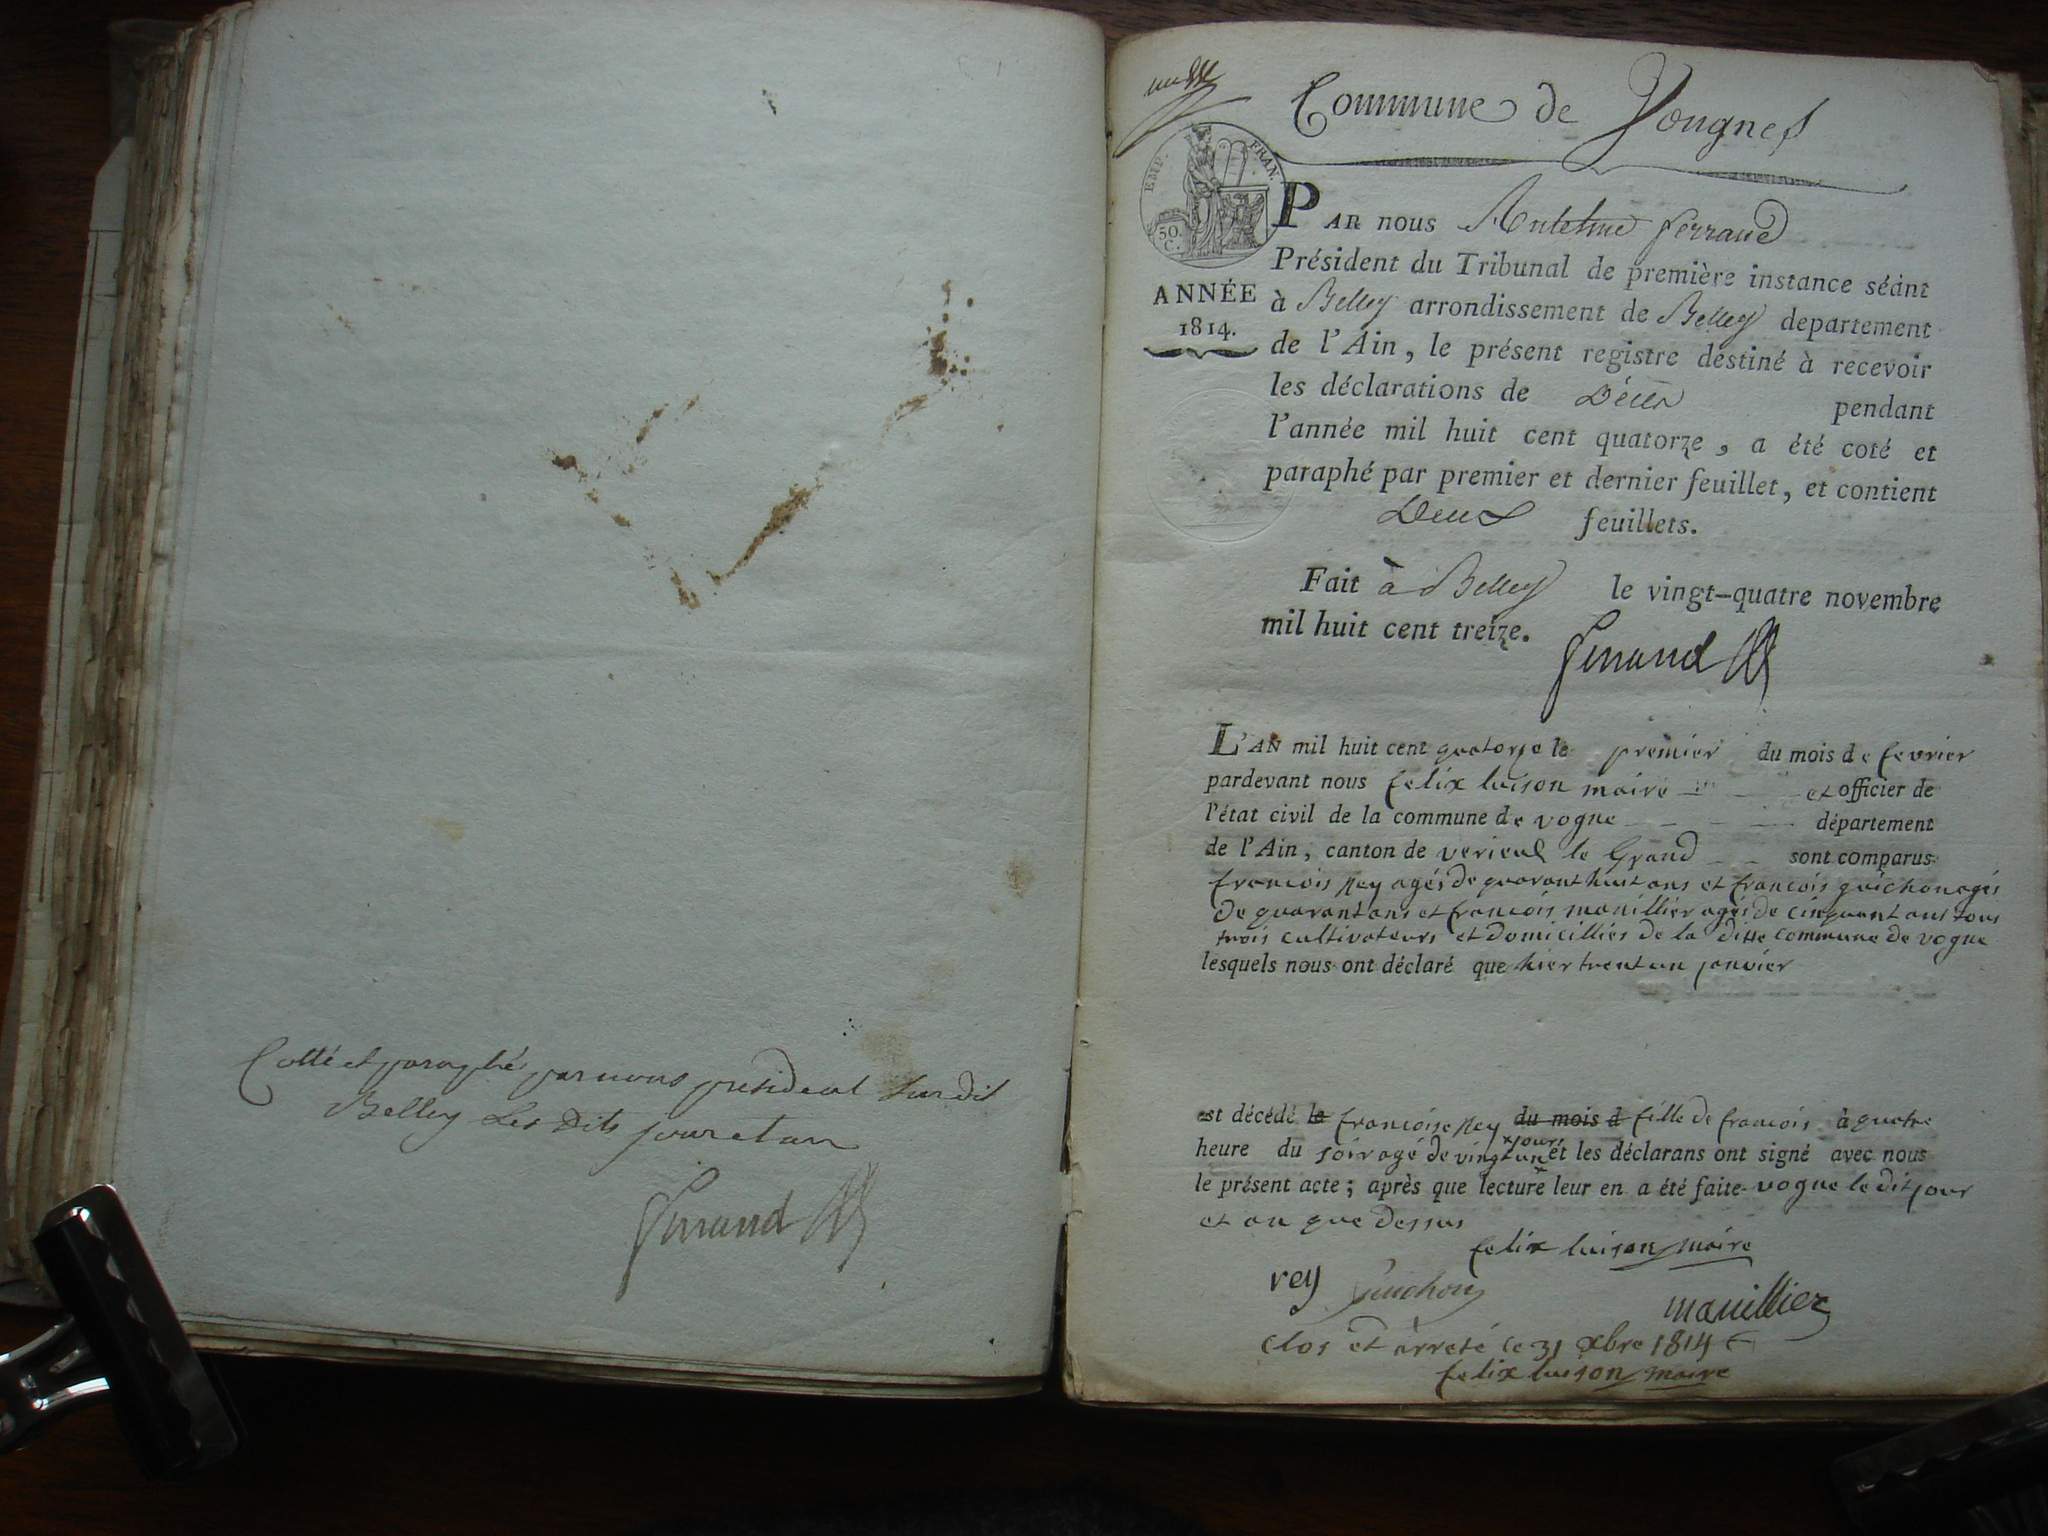 Cotté et paraphé par nous president susdit
Belley Les Dits jour et an
Ferrand
Commune de Vougnes
EMP. FRAN.
50. C.
ANNÉE
1814.
PAR nous Antelme ferrand
Président du Tribunal de première instance séant
à Belley arrondissement de Belley departement
de l'Ain, le présent registre destiné à recevoir
les déclarations de Décès pendant
l'année mil huit cent quatorze, a été coté et
paraphé par premier et dernier feuillet, et contient
Deux feuillets.
Fait à Belley le vingt-quatre novembre
mil huit cent treize.
Ferrand
L'AN mil huit cent quatorze le premier du mois de fevrier
pardevant nous felix luison maire et officier de
l'état civil de la commune de vogne département
de l'Ain, canton de verieul le Grand sont comparus
francois Rey agés de quarant huit ans et francois guichon agés
de quarant ans et francois manillier agés de cinquant ans tous
trois cultivateurs et domicilliés de la ditte commune de vogne
lesquels nous ont déclaré que hier trent un janvier
est décédé le francoise Rey du mois d fille de francois à quatre
heure du soir agé de vingt un jour et les déclarans ont signé avec nous
le présent acte; après que lecture leur en a été faite vogne le dit jour
et an que dessus
felix luison maire
rey Guichon manillier
clos et arreté le 31 xbre 1814
felix luison maire